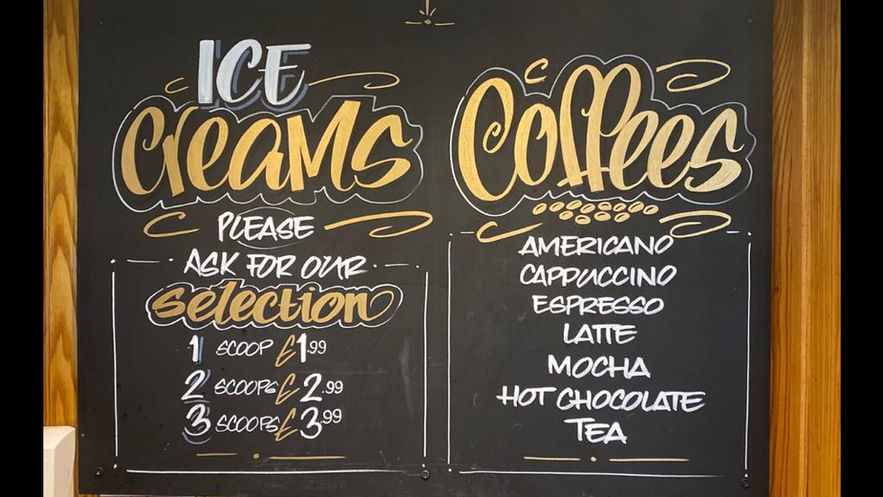 ICE
CreaMs
PLEASE
ASK FOR OUR
Selection
1 SCOOP £1.99
2 SCOOPS £2.99
3 SCOOPS £3.99
Coffees
AMERICANO
CAPPUCCINO
ESPRESSO
LATTE
MOCHA
HOT CHOCOLATE
TEA